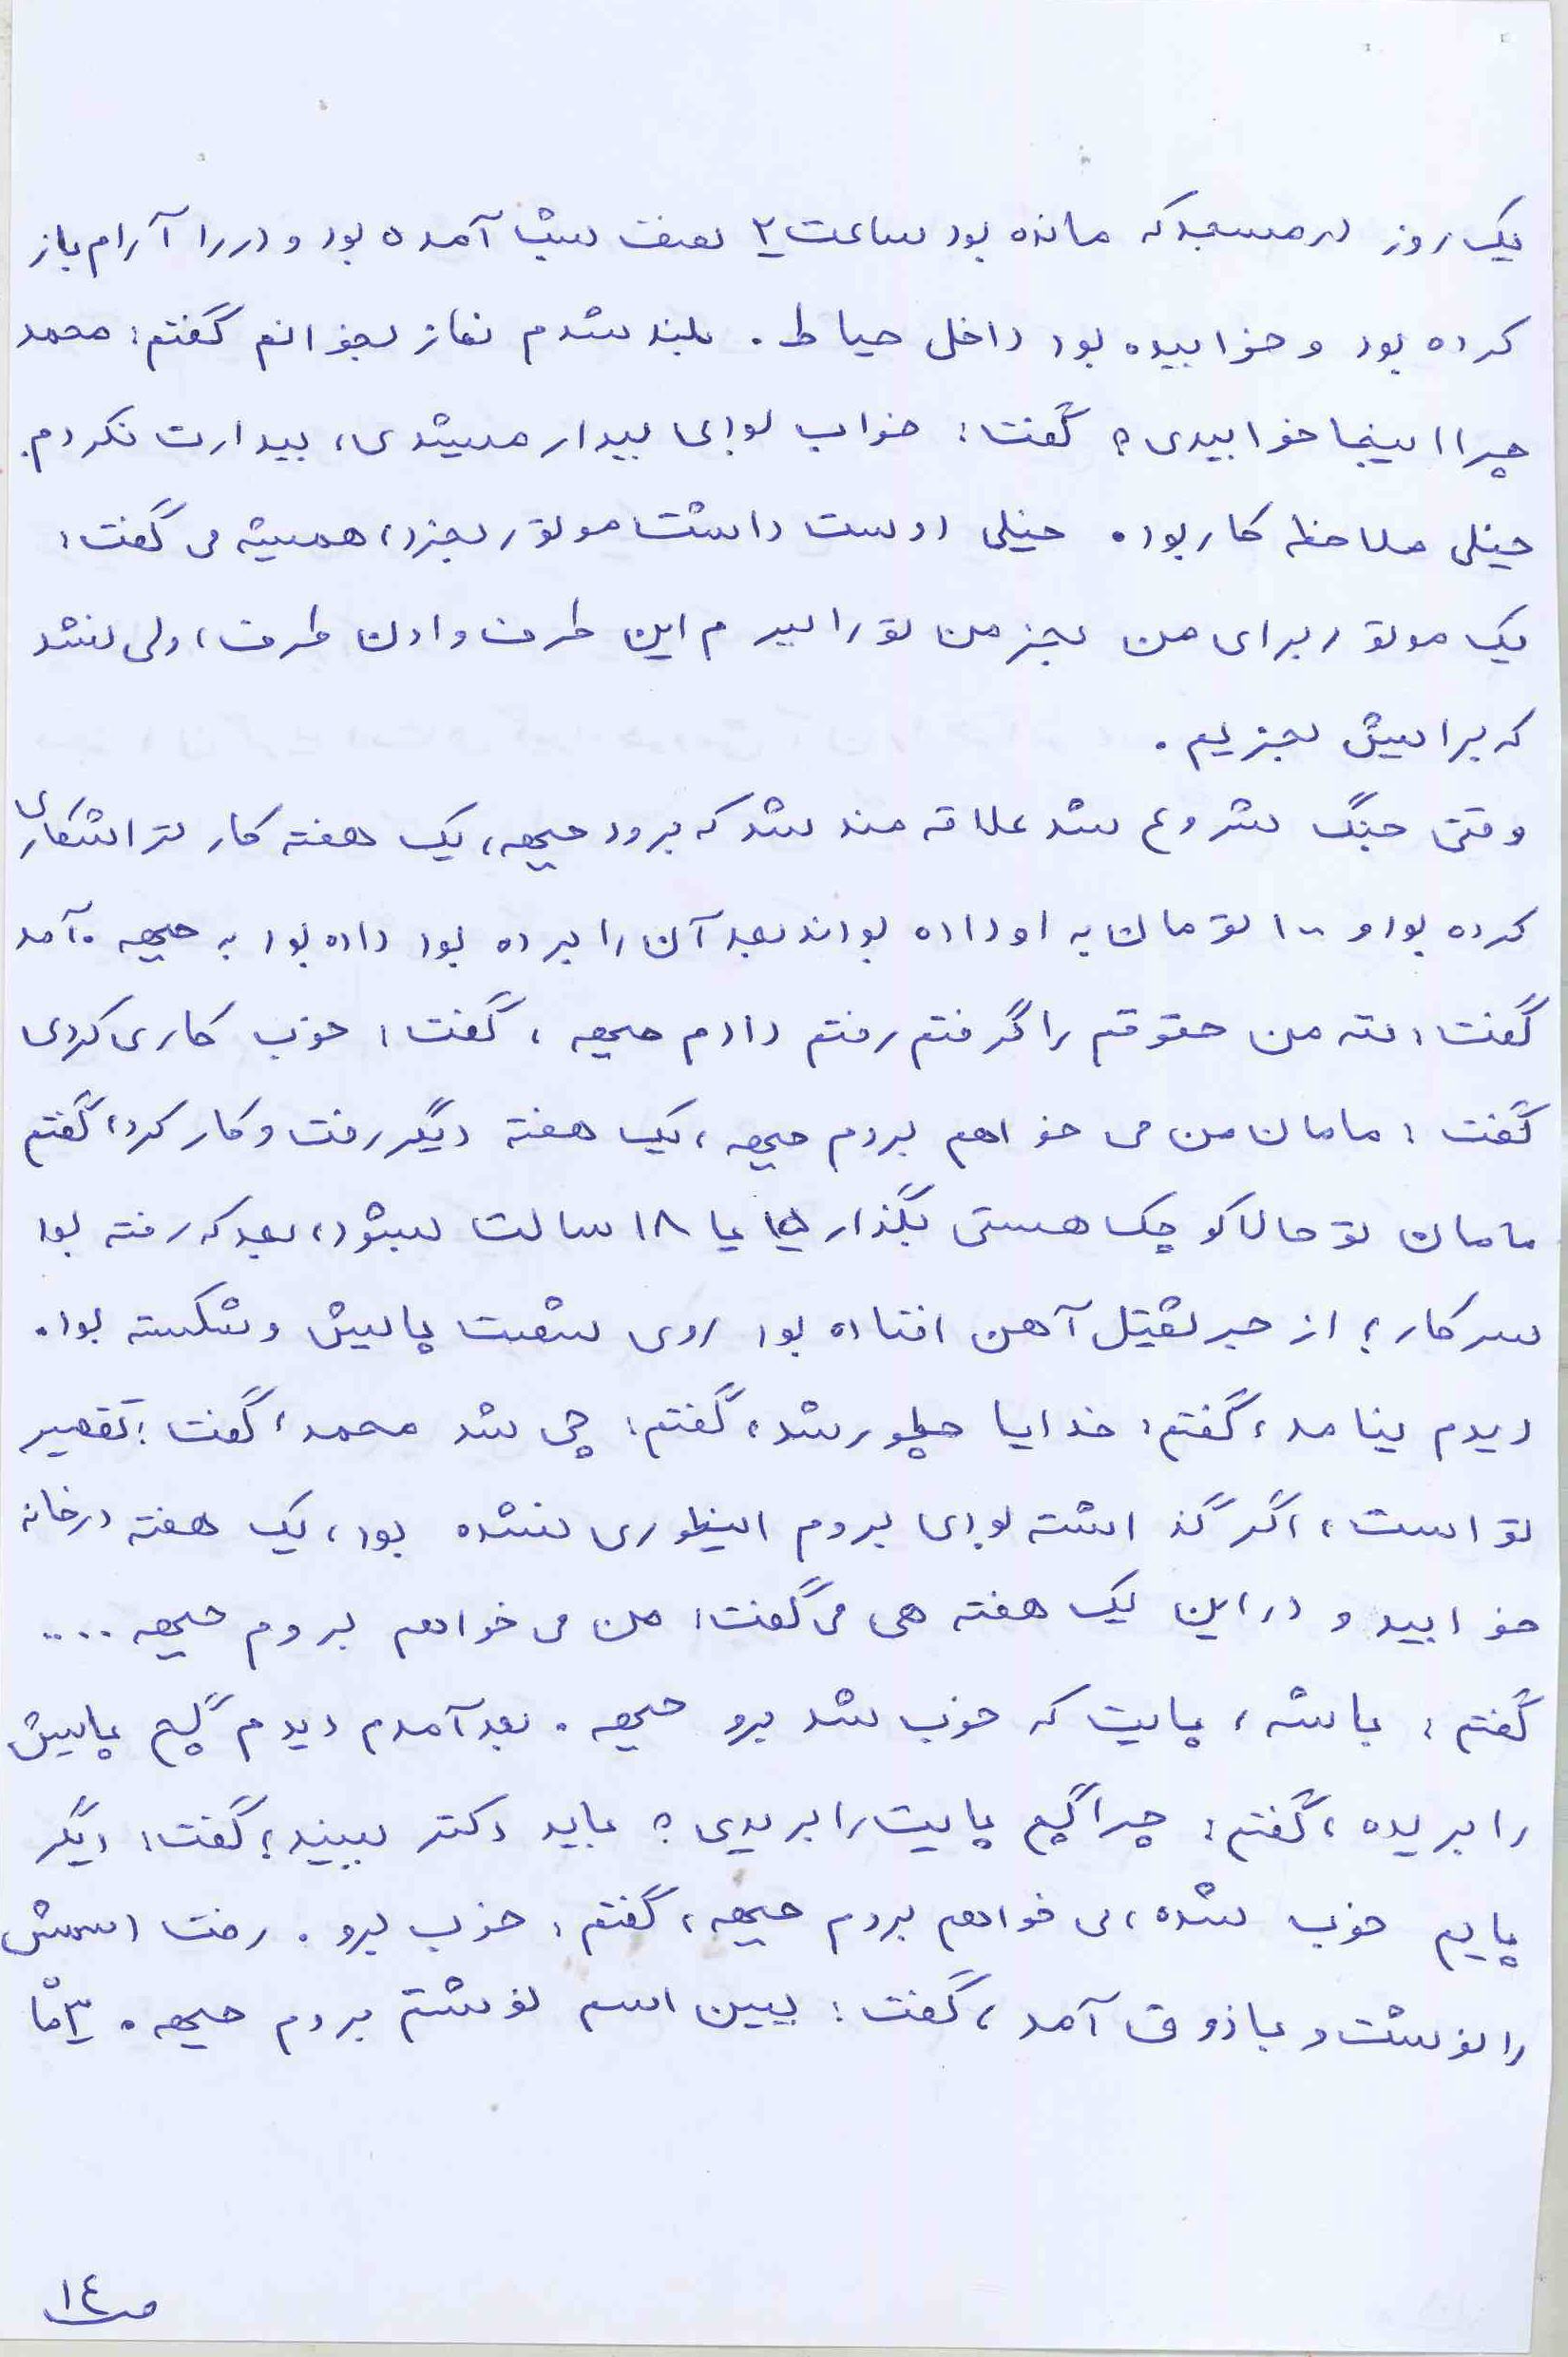 یک روز در مسجد که مانده بود ساعت ۲ نصف شب آمده بود و در را آرام باز
کرده بود و خوابیده بود داخل حیاط. بلند شدم نماز بخوانم گفتم: محمد
چرا اینجا خوابیدی؟ گفت: خواب بودی بیدار میشدی، بیدارت نکردم.
خیلی ملاحظه کار بود. خیلی دوست داشت موتور بخرد، همیشه می گفت:
یک موتور برای من بخر من تو را ببرم این طرف و اون طرف، ولی نشد
که برایش بخریم.
وقتی جنگ شروع شد علاقه مند شد که برود جبهه، یک هفته کار تراشکاری
کرده بود و ۱۰۰ تومان به او داده بودند بعد آن را برده بود داده بود به جبهه. آمد
گفت: ننه من حقوقم را گرفتم رفتم دادم جبهه، گفت: خوب کاری کردی
گفت: مامان من می خواهم بروم جبهه، یک هفته دیگر رفت و کار کرد، گفتم
مامان تو حالا کوچک هستی بگذار ۱۵ یا ۱۸ سالت بشود، بعد که رفته بود
سر کار؛ از جرثقیل آهن افتاده بود روی شصت پایش و شکسته بود.
دیدم نیامد، گفتم: خدایا چطور شد، گفتم: چی شد محمد، گفت: تقصیر
تو است، اگر گذاشته بودی بروم اینطوری نشده بود، یک هفته در خانه
خوابید و در این یک هفته هی می گفت: من می خواهم بروم جبهه ....
گفتم: باشه، پایت که خوب شد برو جبهه. بعد آمدم دیدم گچ پایش
را بریده، گفتم: چرا گچ پایت را بریدی؟ باید دکتر ببیند؛ گفت: دیگر
پایم خوب شده، می خواهم بروم جبهه، گفتم: خوب برو. رفت اسمش
را نوشت و با ذوق آمد، گفت: ببین اسم نوشتم بروم جبهه. ۳ تا
ص ۱٤